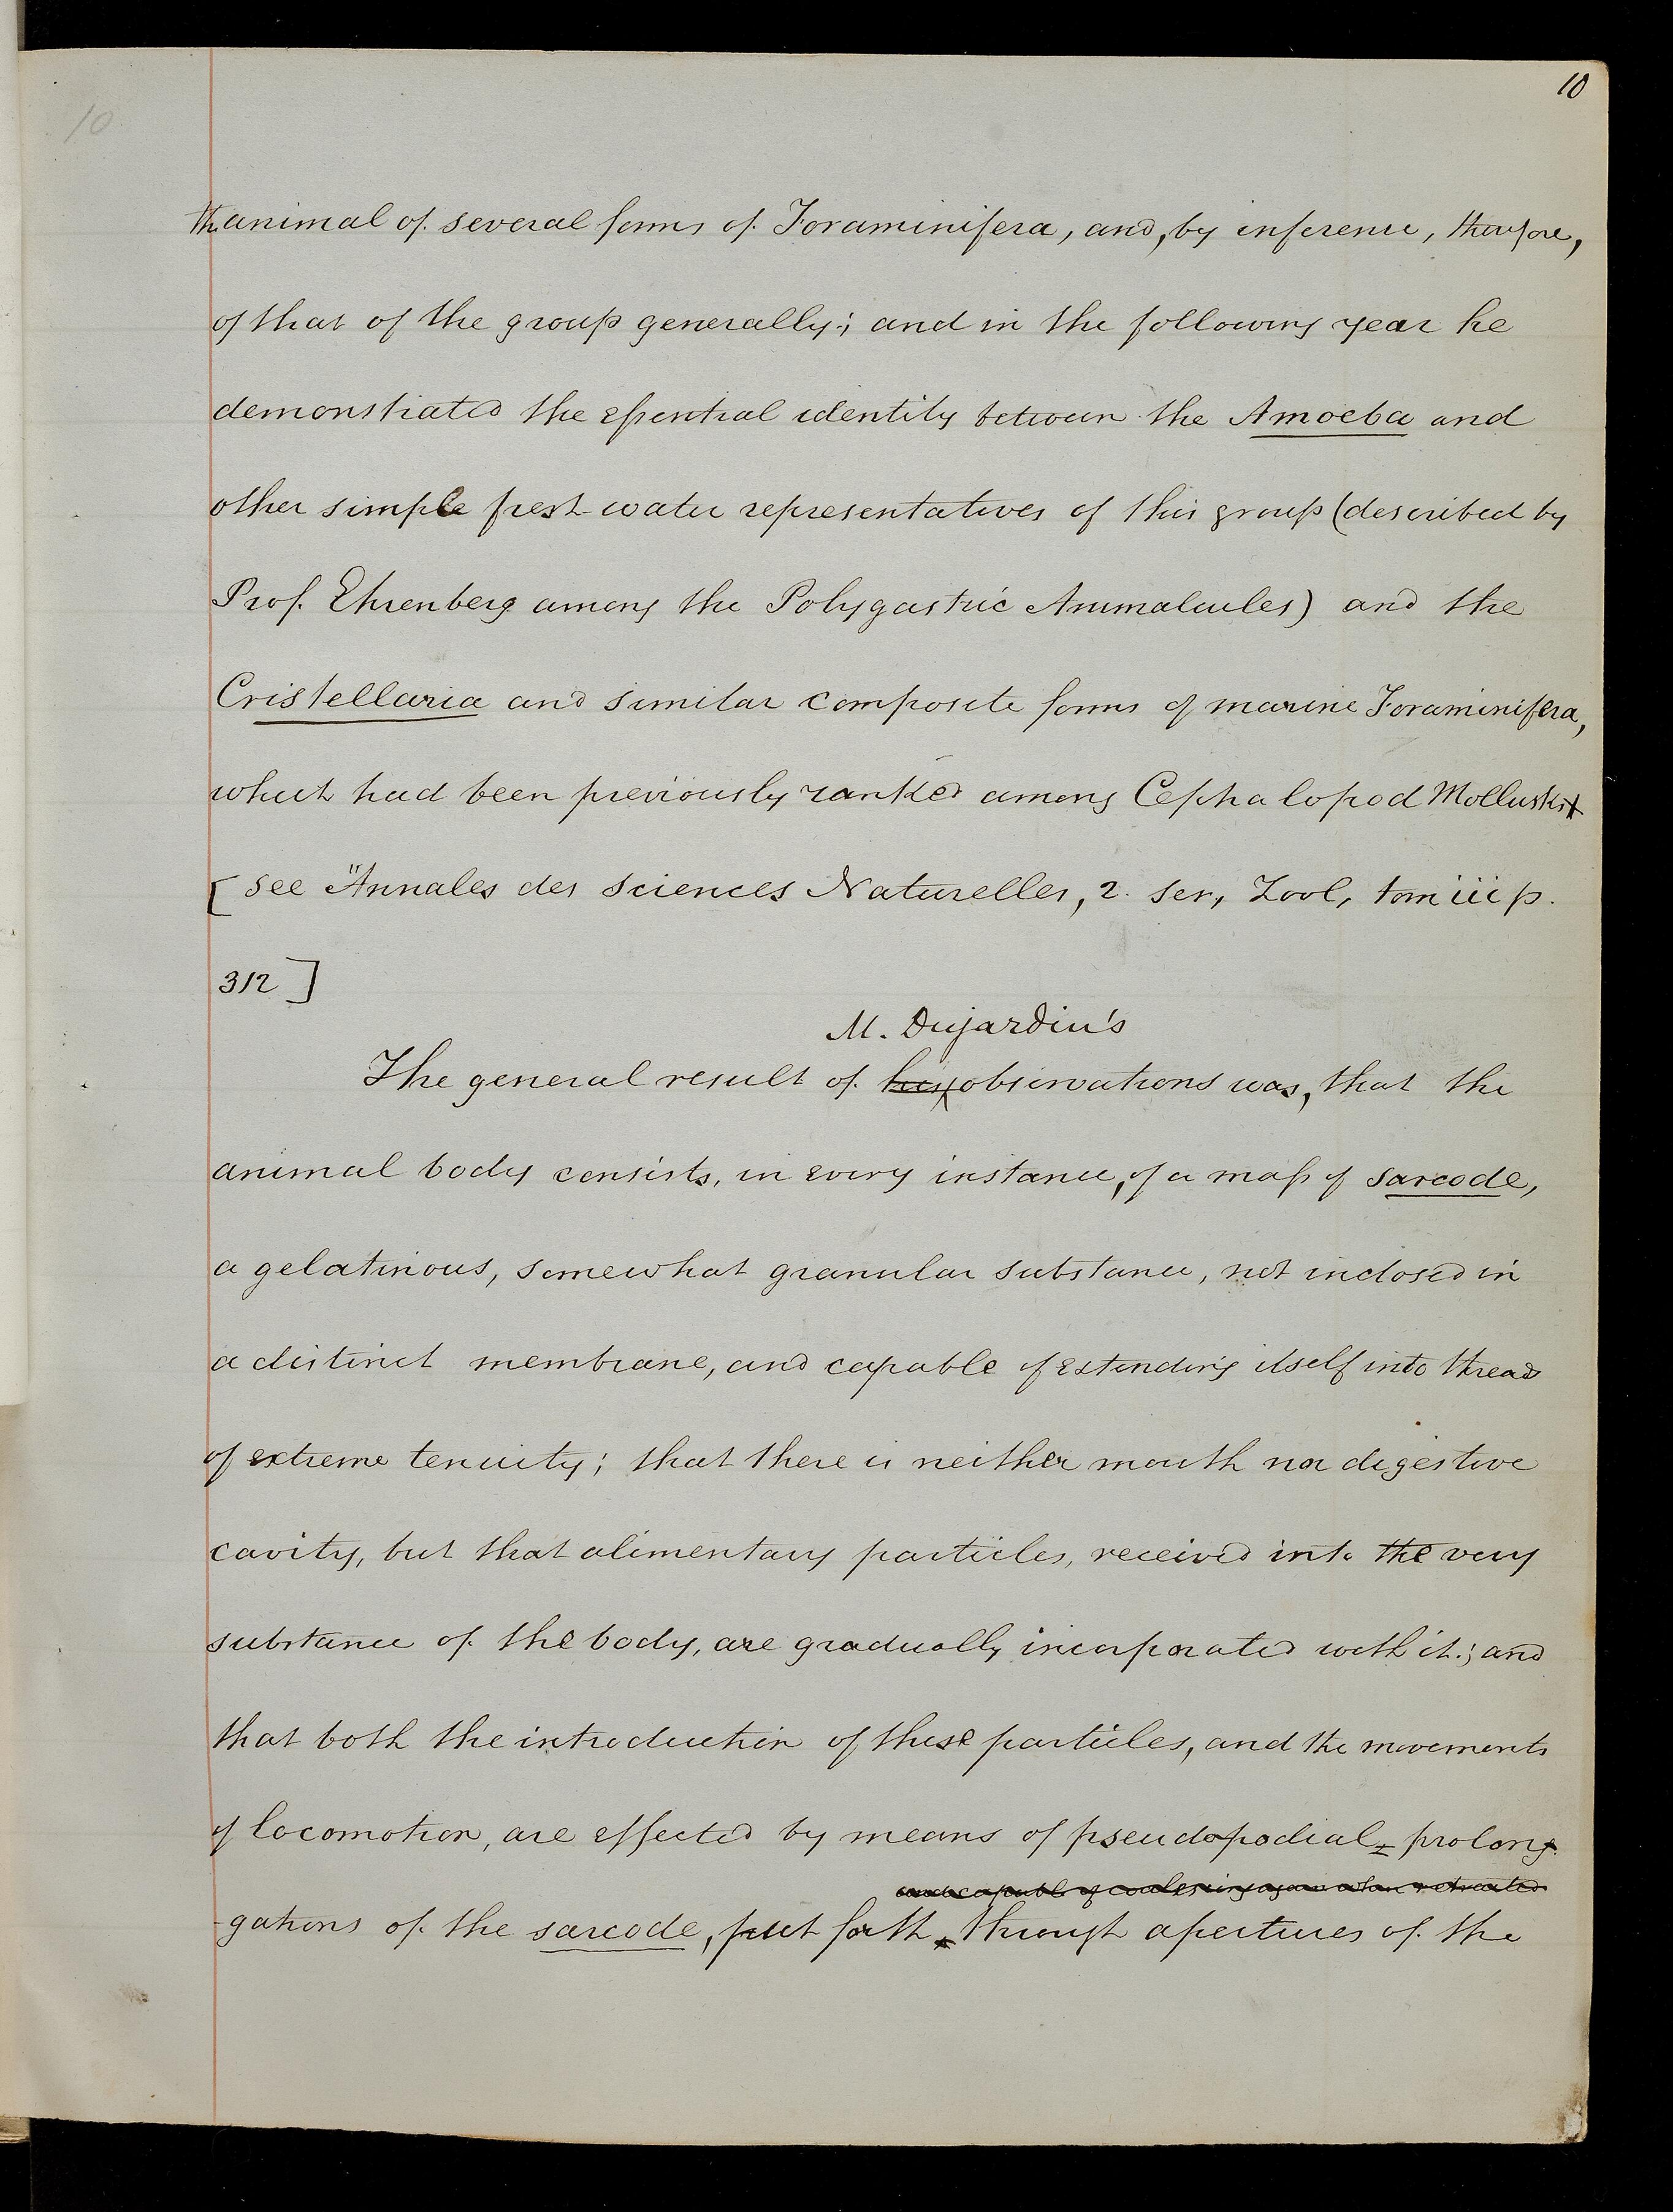 10
10
th animal of several forms of Foraminifera, and, by inference, therefore,
of that of the group generally; and in the following year he
demonstrated the essential identity between the Amoeba and
other simple fresh-water representatives of this group (described by
Prof. Ehrenberg among the Polygastric Animalcules) and the
Cristellaria and similar composite forms of marine Foraminifera,
which had been previously ranked among Cephalopod Mollusks
[see "Annales des Sciences Naturelles, 2. ser, Zool, tom iii p.
312]
M. Dujardin's
The general result of his observations was, that the
animal body consists, in every instance, of a mass of sarcode,
a gelatinous, somewhat granular substance, not inclosed in
a distinct membrane, and capable of extending itself into threads
of extreme tenuity; that there is neither mouth nor digestive
cavity, but that alimentary particles, received into the very
substance of the body, are gradually incorporated with it; and
that both the introduction of these particles, and the movements
of locomotion, are effected by means of pseudopodial prolon-
and capable of coalescing again when retracted
gations of the sarcode, put forth through apertures of the